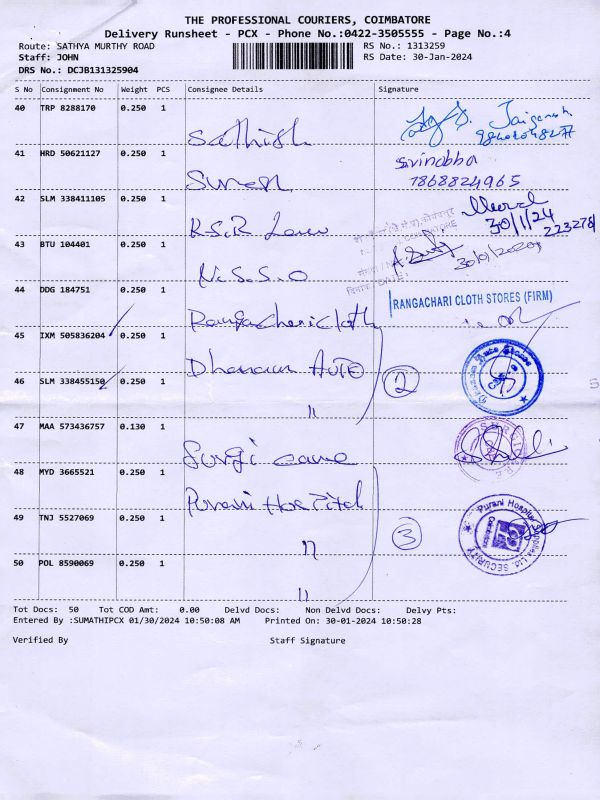 THE PROFESSIONAL COURIERS, COIMBATORE
Delivery Runsheet - PCX - Phone No.:0422-3505555 - Page No.:4
Route: SATHYA MURTHY ROAD RS No.: 1313259
Staff: JOHN RS Date: 30-Jan-2024
DRS No.: DCJB131325904
S No Consignment No Weight PCS Consignee Details Signature
40 TRP 8288170 0.250 1 Sathish
41 HRD 50621127 0.250 1 Suresh
7868824965
42 SLM 338411105 0.250 1 K.S.R
30/1/24
43 BTU 104401 0.250 1 N.S.S.O
44 DDG 184751 0.250 1 Rangachari cloth
RANGACHARI CLOTH STORES (FIRM)
45 IXM 505836204 0.250 1 Dhanam AUTO
46 SLM 338455150 0.250 1 〃 2
47 MAA 573436757 0.130 1 Surgi care
48 MYD 3665521 0.250 1 Purani Hospital
49 TNJ 5527069 0.250 1 〃 3
Purani Hospital Supplies Ltd. SECURITY
50 POL 8590069 0.250 1 〃
Tot Docs: 50 Tot COD Amt: 0.00 Delvd Docs: Non Delvd Docs: Delvy Pts:
Entered By :SUMATHIPCX 01/30/2024 10:50:08 AM Printed On: 30-01-2024 10:50:28
Verified By Staff Signature